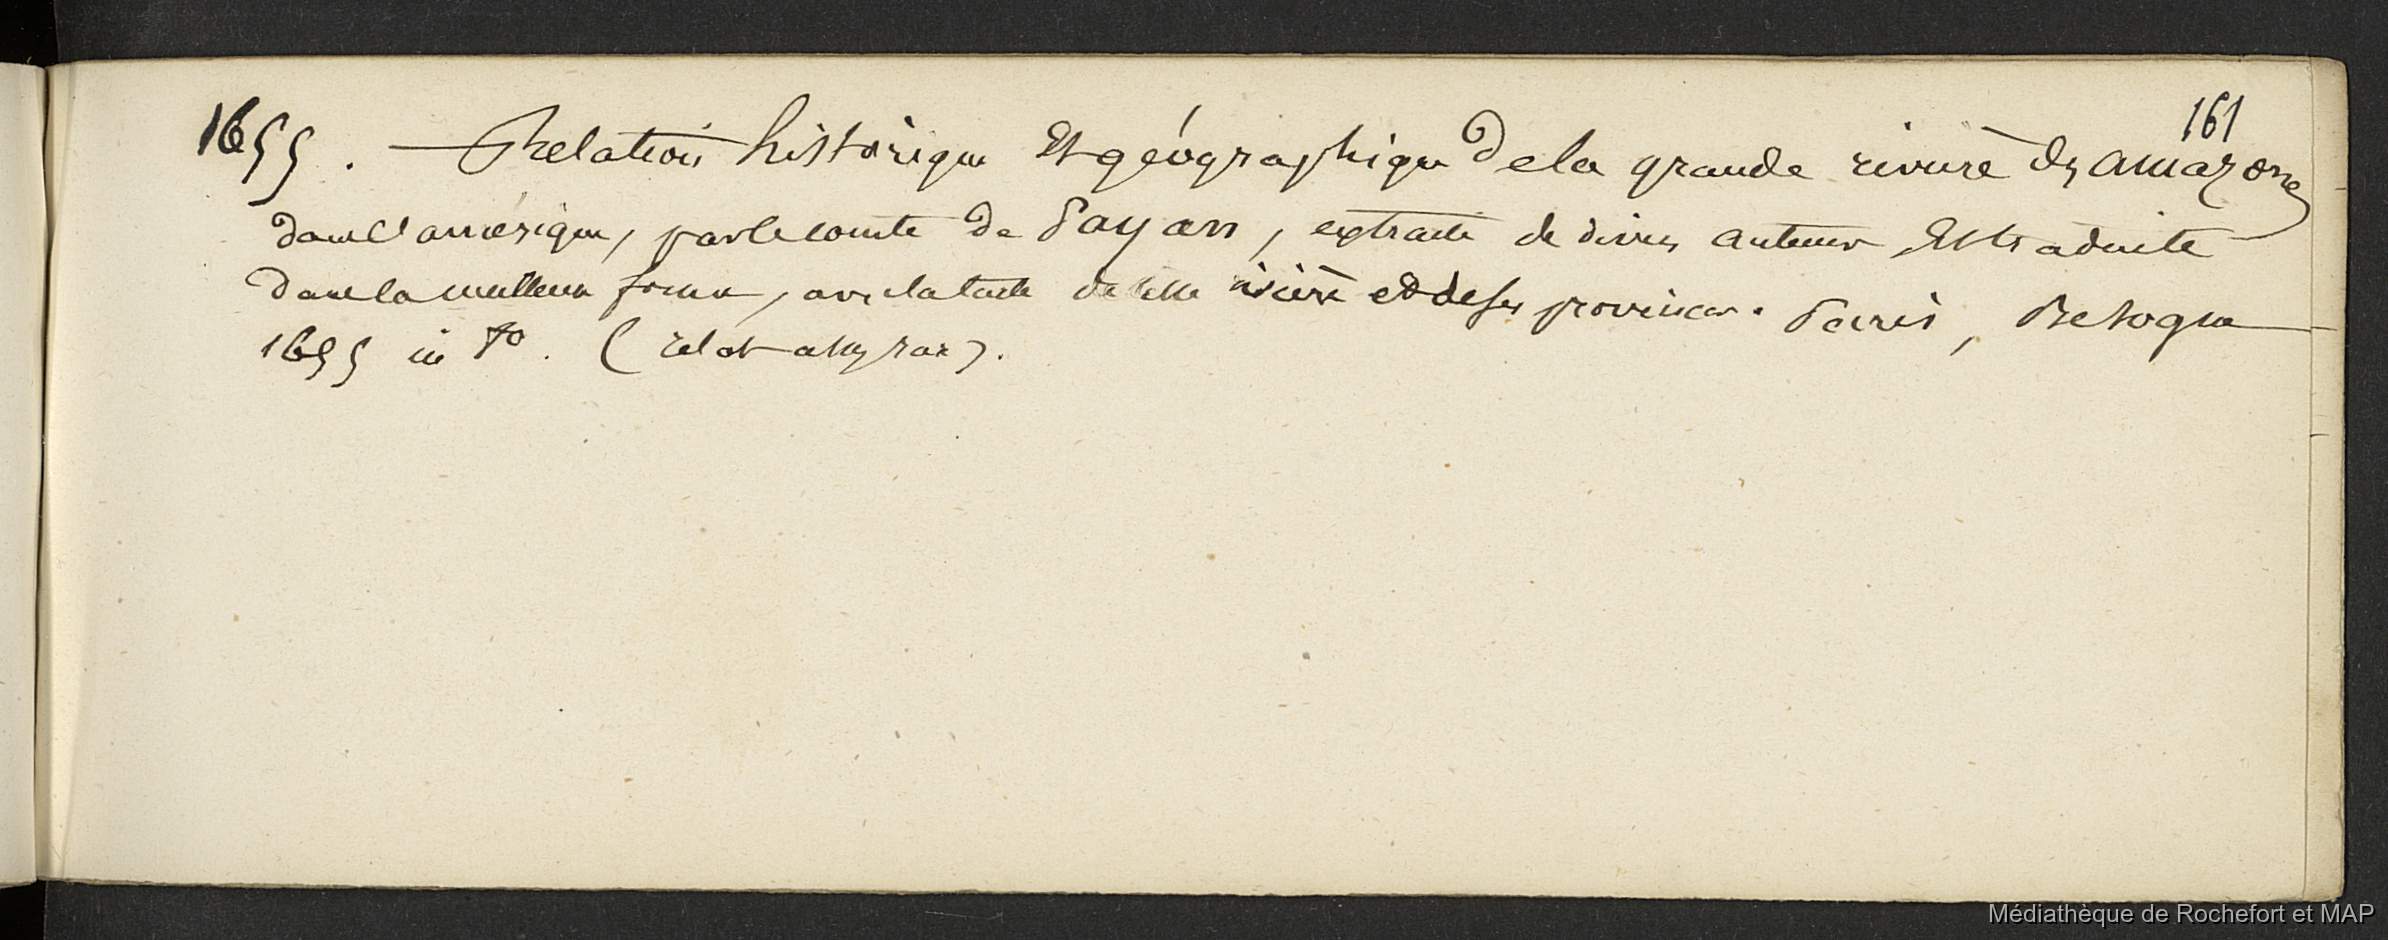 161
1655. — Relation historique Et géographique De la grande rivière des amazones
dans l'amérique, par le comte De Pagan, extraite de divers auteurs Et traduite
dans la meilleure forme, avec la carte de cette rivière et de ses provinces. Paris, Besogne
1655 in 8o. (
Médiathèque de Rochefort et MAP